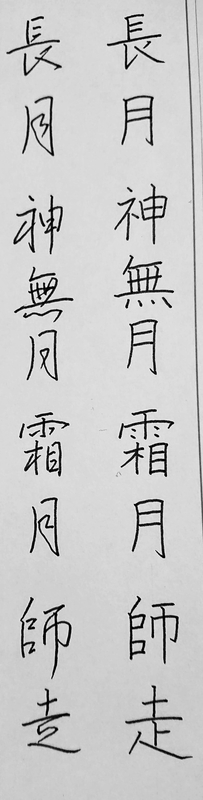 長月 神無月 霜月 師走
長月 神無月 霜月 師走